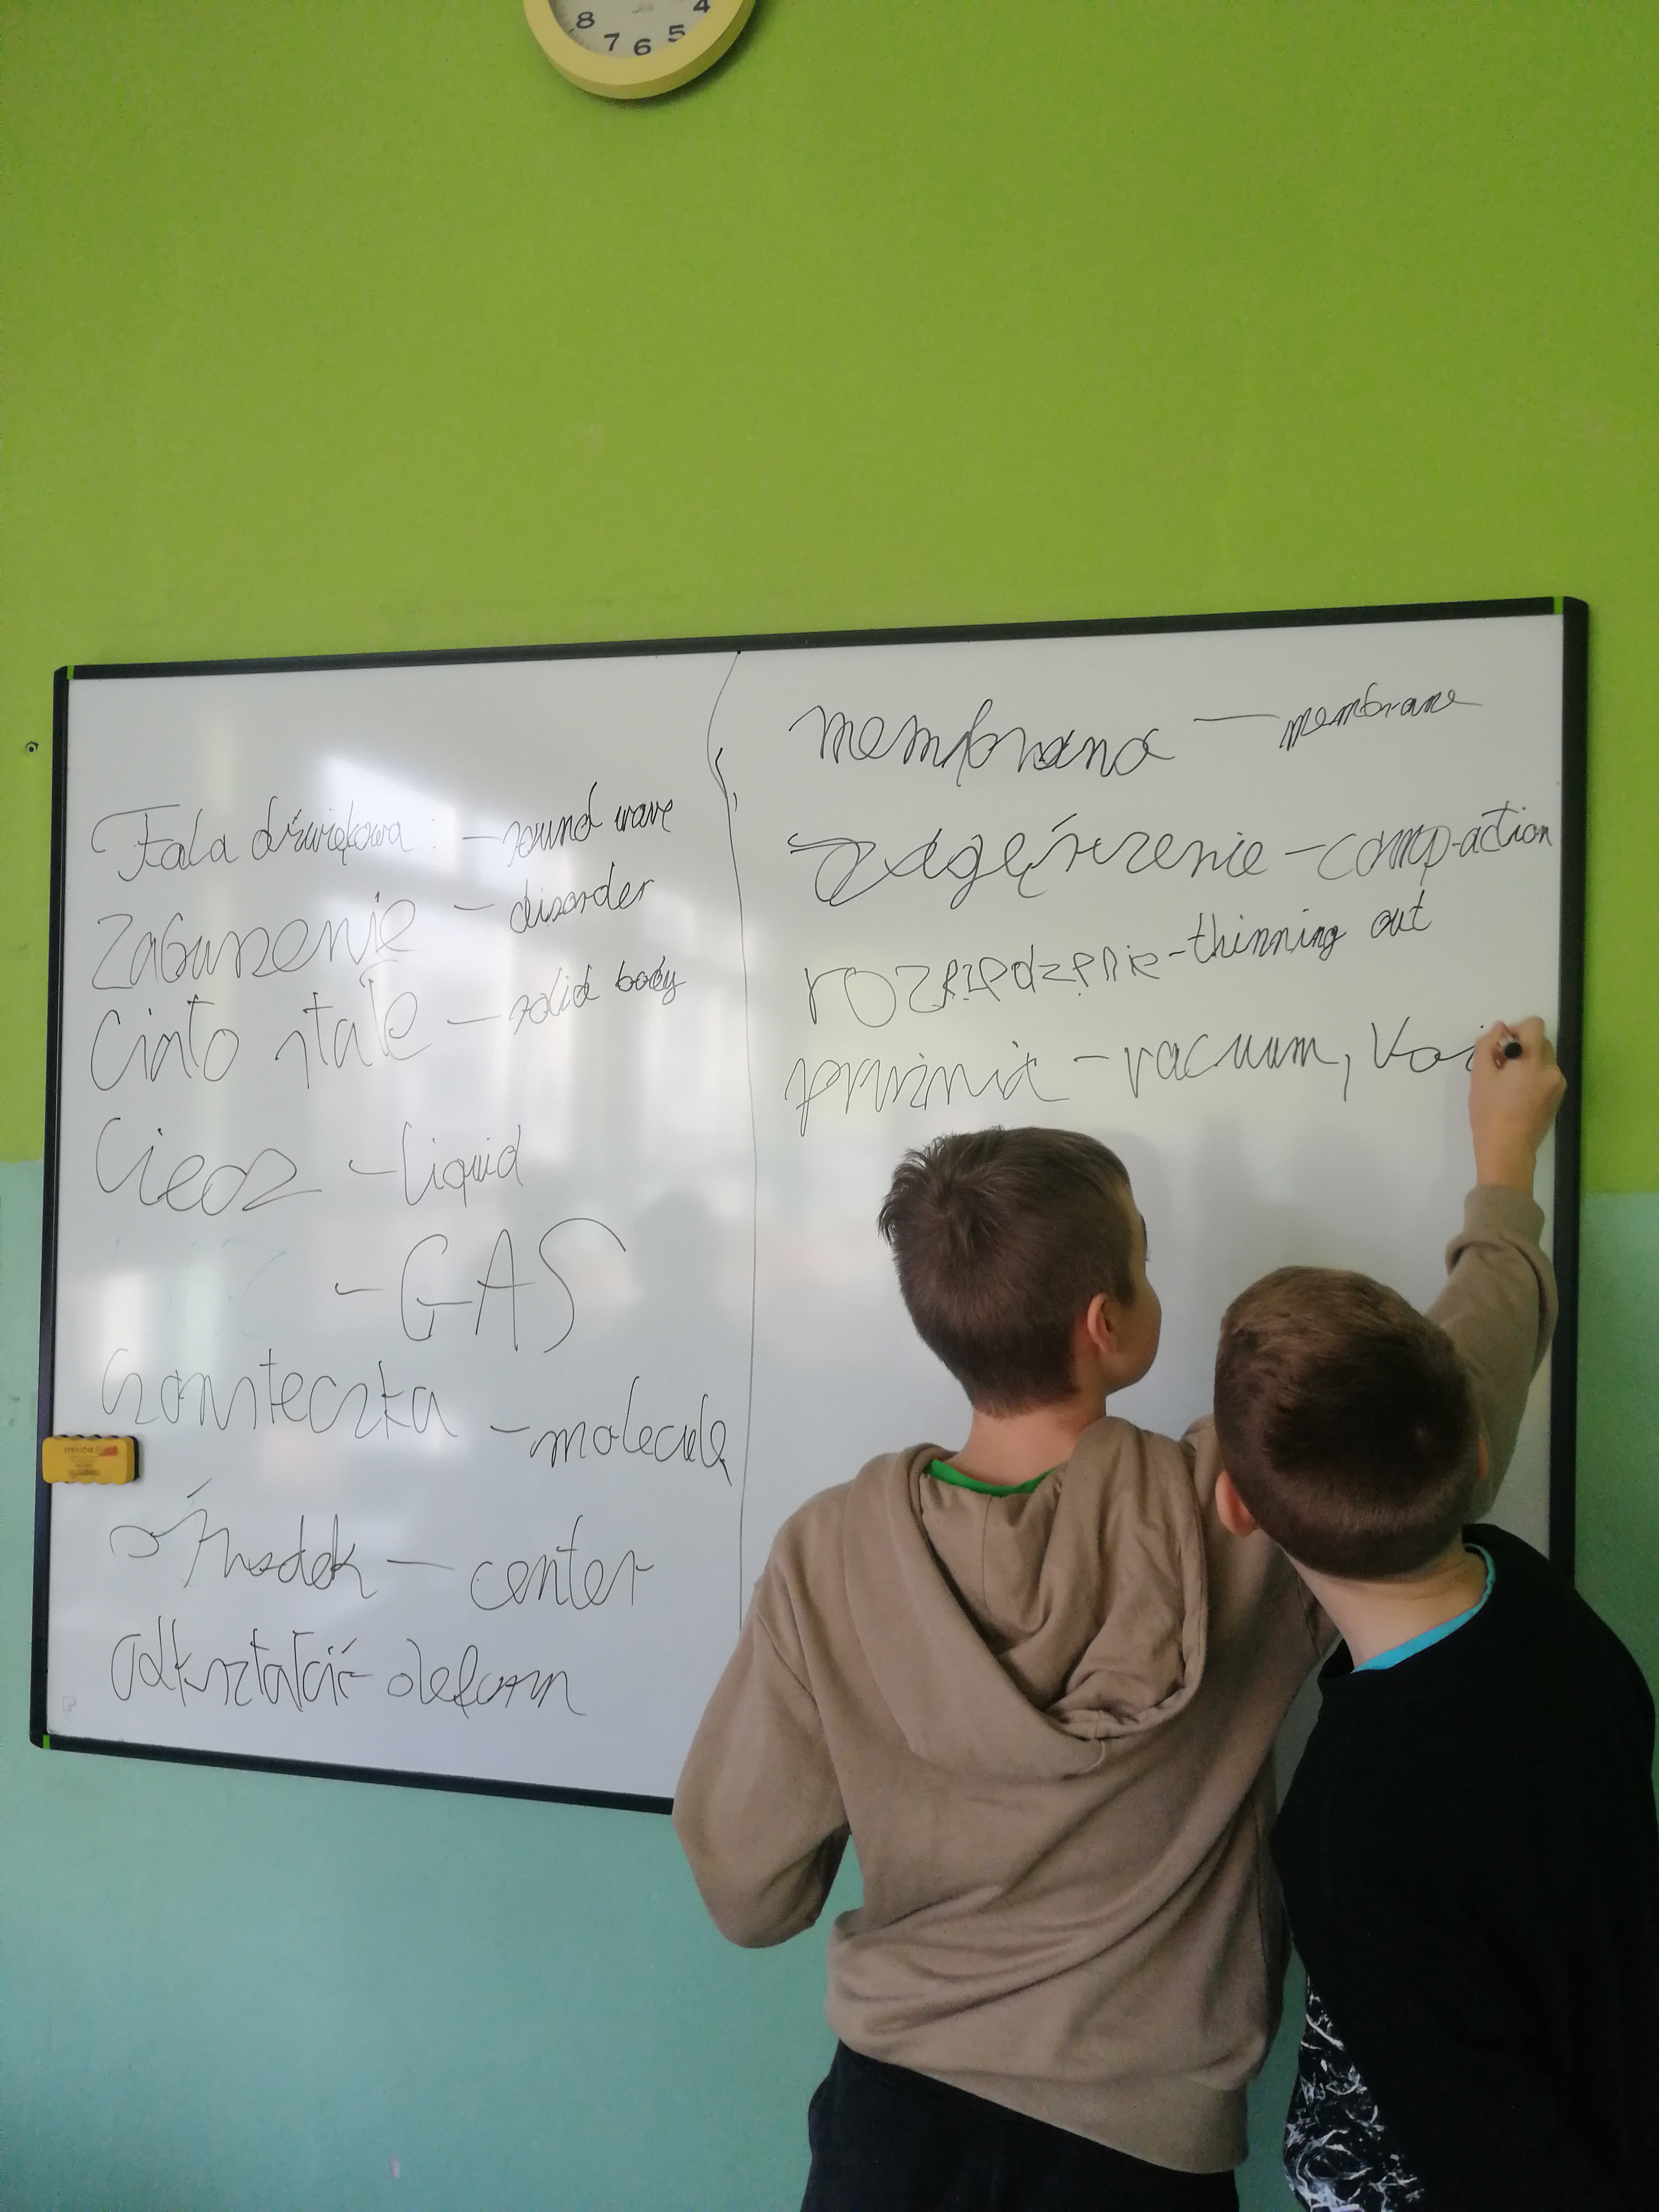 8 7 6 5 4
Fala dźwiękowa: - sound wave
Zaburzenie - disorder
Ciało stałe - solid body
Ciecz - Liquid
- GAS
cząsteczka - molecule
ośrodek - center
odkształcić - deform
membrana - membrane
zagęszczenie - comp-action
rozrzedzenie - thinning out
próżnia - vacuum, Voi